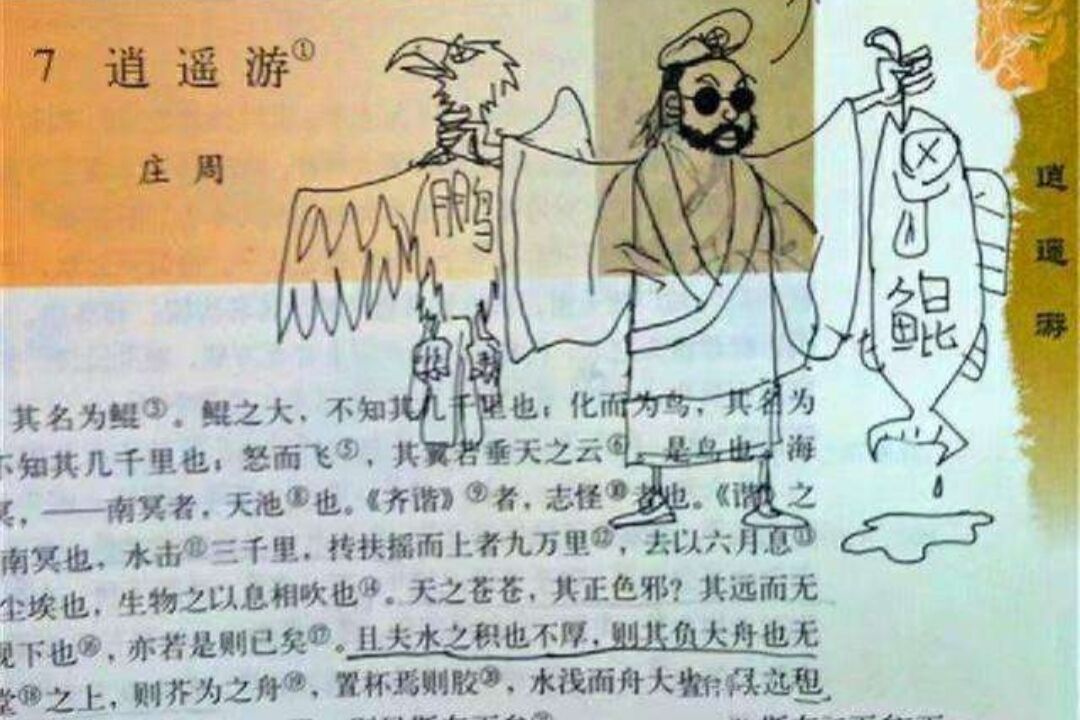 7 逍遥游①
庄周
鹏
鲲
逍遥游
其名为鲲③。鲲之大，不知其几千里也；化而为鸟，其名为
不知其几千里也；怒而飞⑤，其翼若垂天之云⑥。是鸟也，海
冥，——南冥者，天池⑧也。《齐谐》⑨者，志怪⑩者也。《谐》之
南冥也，水击⑪三千里，抟扶摇而上者九万里⑫，去以六月息⑬
尘埃也，生物之以息相吹也⑭。天之苍苍，其正色邪？其远而无
视下也⑯，亦若是则已矣⑰。且夫水之积也不厚，则其负大舟也无
堂⑱之上，则芥为之舟⑲，置杯焉则胶⑳，水浅而舟大也